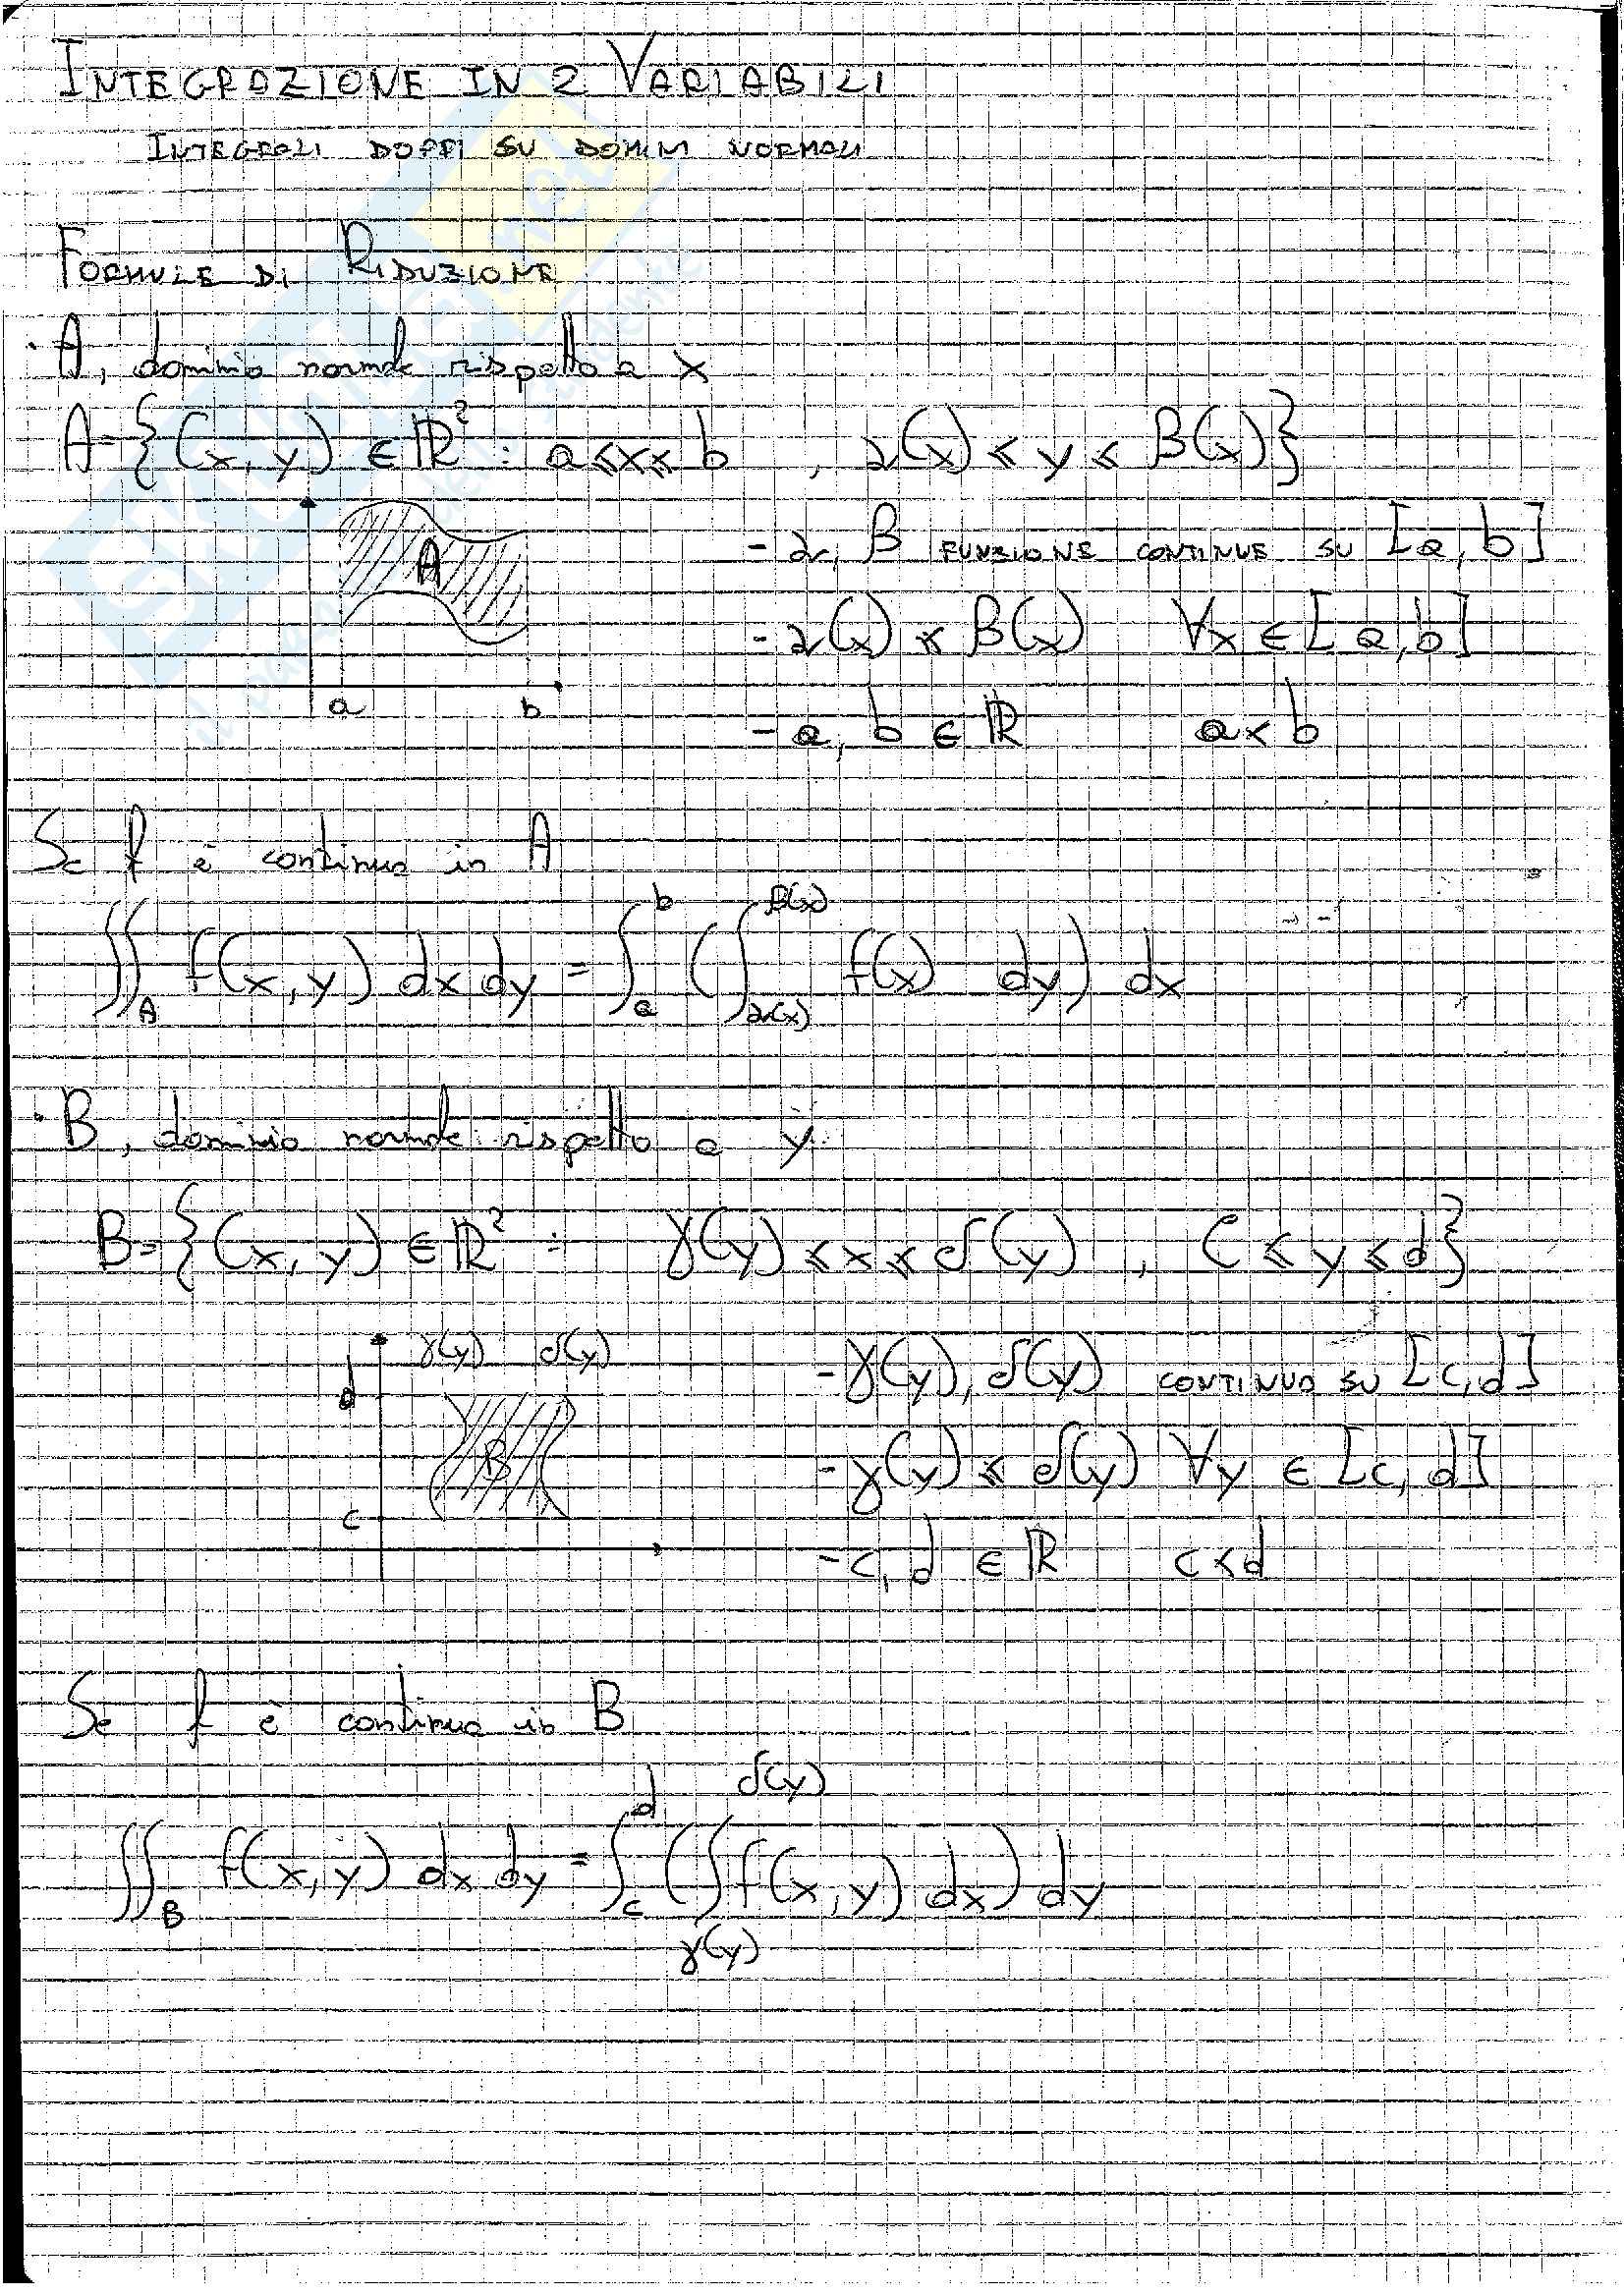 INTEGRAZIONE IN 2 VARIABILI
INTEGRALI DOPPI SU DOMINI NORMALI
FORMULE DI RIDUZIONE
· A, dominio normale rispetto a x
A = {(x, y) ∈ ℝ² : a ≤ x ≤ b , α(x) ≤ y ≤ β(x)}
A
a b
- α, β FUNZIONE CONTINUE SU [a, b]
- α(x) ≤ β(x) ∀x ∈ [a, b]
- a, b ∈ ℝ a < b
Se f è continua in A
∬_A f(x, y) dx dy = ∫_a^b (∫_α(x)^β(x) f(x) dy) dx
· B, dominio normale rispetto a y
B = {(x, y) ∈ ℝ² : γ(y) ≤ x ≤ δ(y) , c ≤ y ≤ d}
γ(y) δ(y)
d
B
c
- γ(y), δ(y) CONTINUO SU [c, d]
- γ(y) ≤ δ(y) ∀y ∈ [c, d]
- c, d ∈ ℝ c < d
Se f è continua in B
∬_B f(x, y) dx dy = ∫_c^d (∫_γ(y)^δ(y) f(x, y) dx) dy